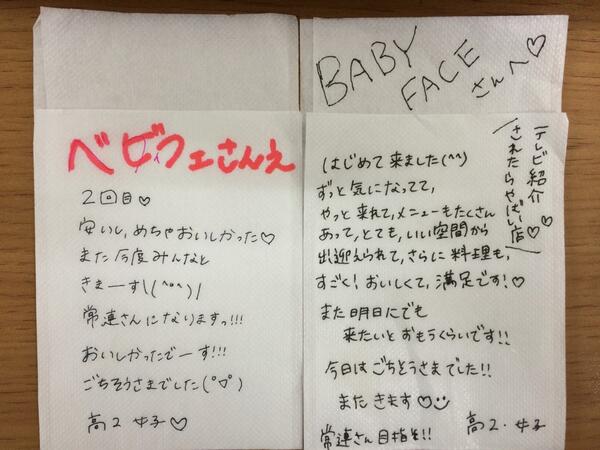 ベビフェさんえ
2回目♡
安いし、めちゃおいしかった♡
また今度みんなと
きまーす\(^o^)/
常連さんになりますっ!!!
おいしかったでーす!!!
ごちそうさまでした(°▽°)
高2 女子♡
BABY
FACE
さんへ♡
テレビ紹介
されたらやばい店♡♡
はじめて来ました(^^)
ずっと気になってて、
やっと来れて、メニューもたくさん
あって、とても、いい空間から
出迎えられて、さらに料理も、
すごく!おいしくて、満足です!♡
また明日にでも
来たいとおもうくらいです!!
今日はごちそうさまでした!!
またきます♡☺
常連さん目指そ!!
高2・女子